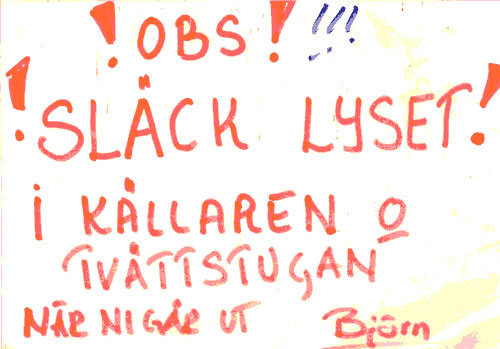 ! OBS ! !!!
! SLÄCK LYSET !
i KÄLLAREN o
TVÄTTSTUGAN
NÄR NI GÅR UT Björn